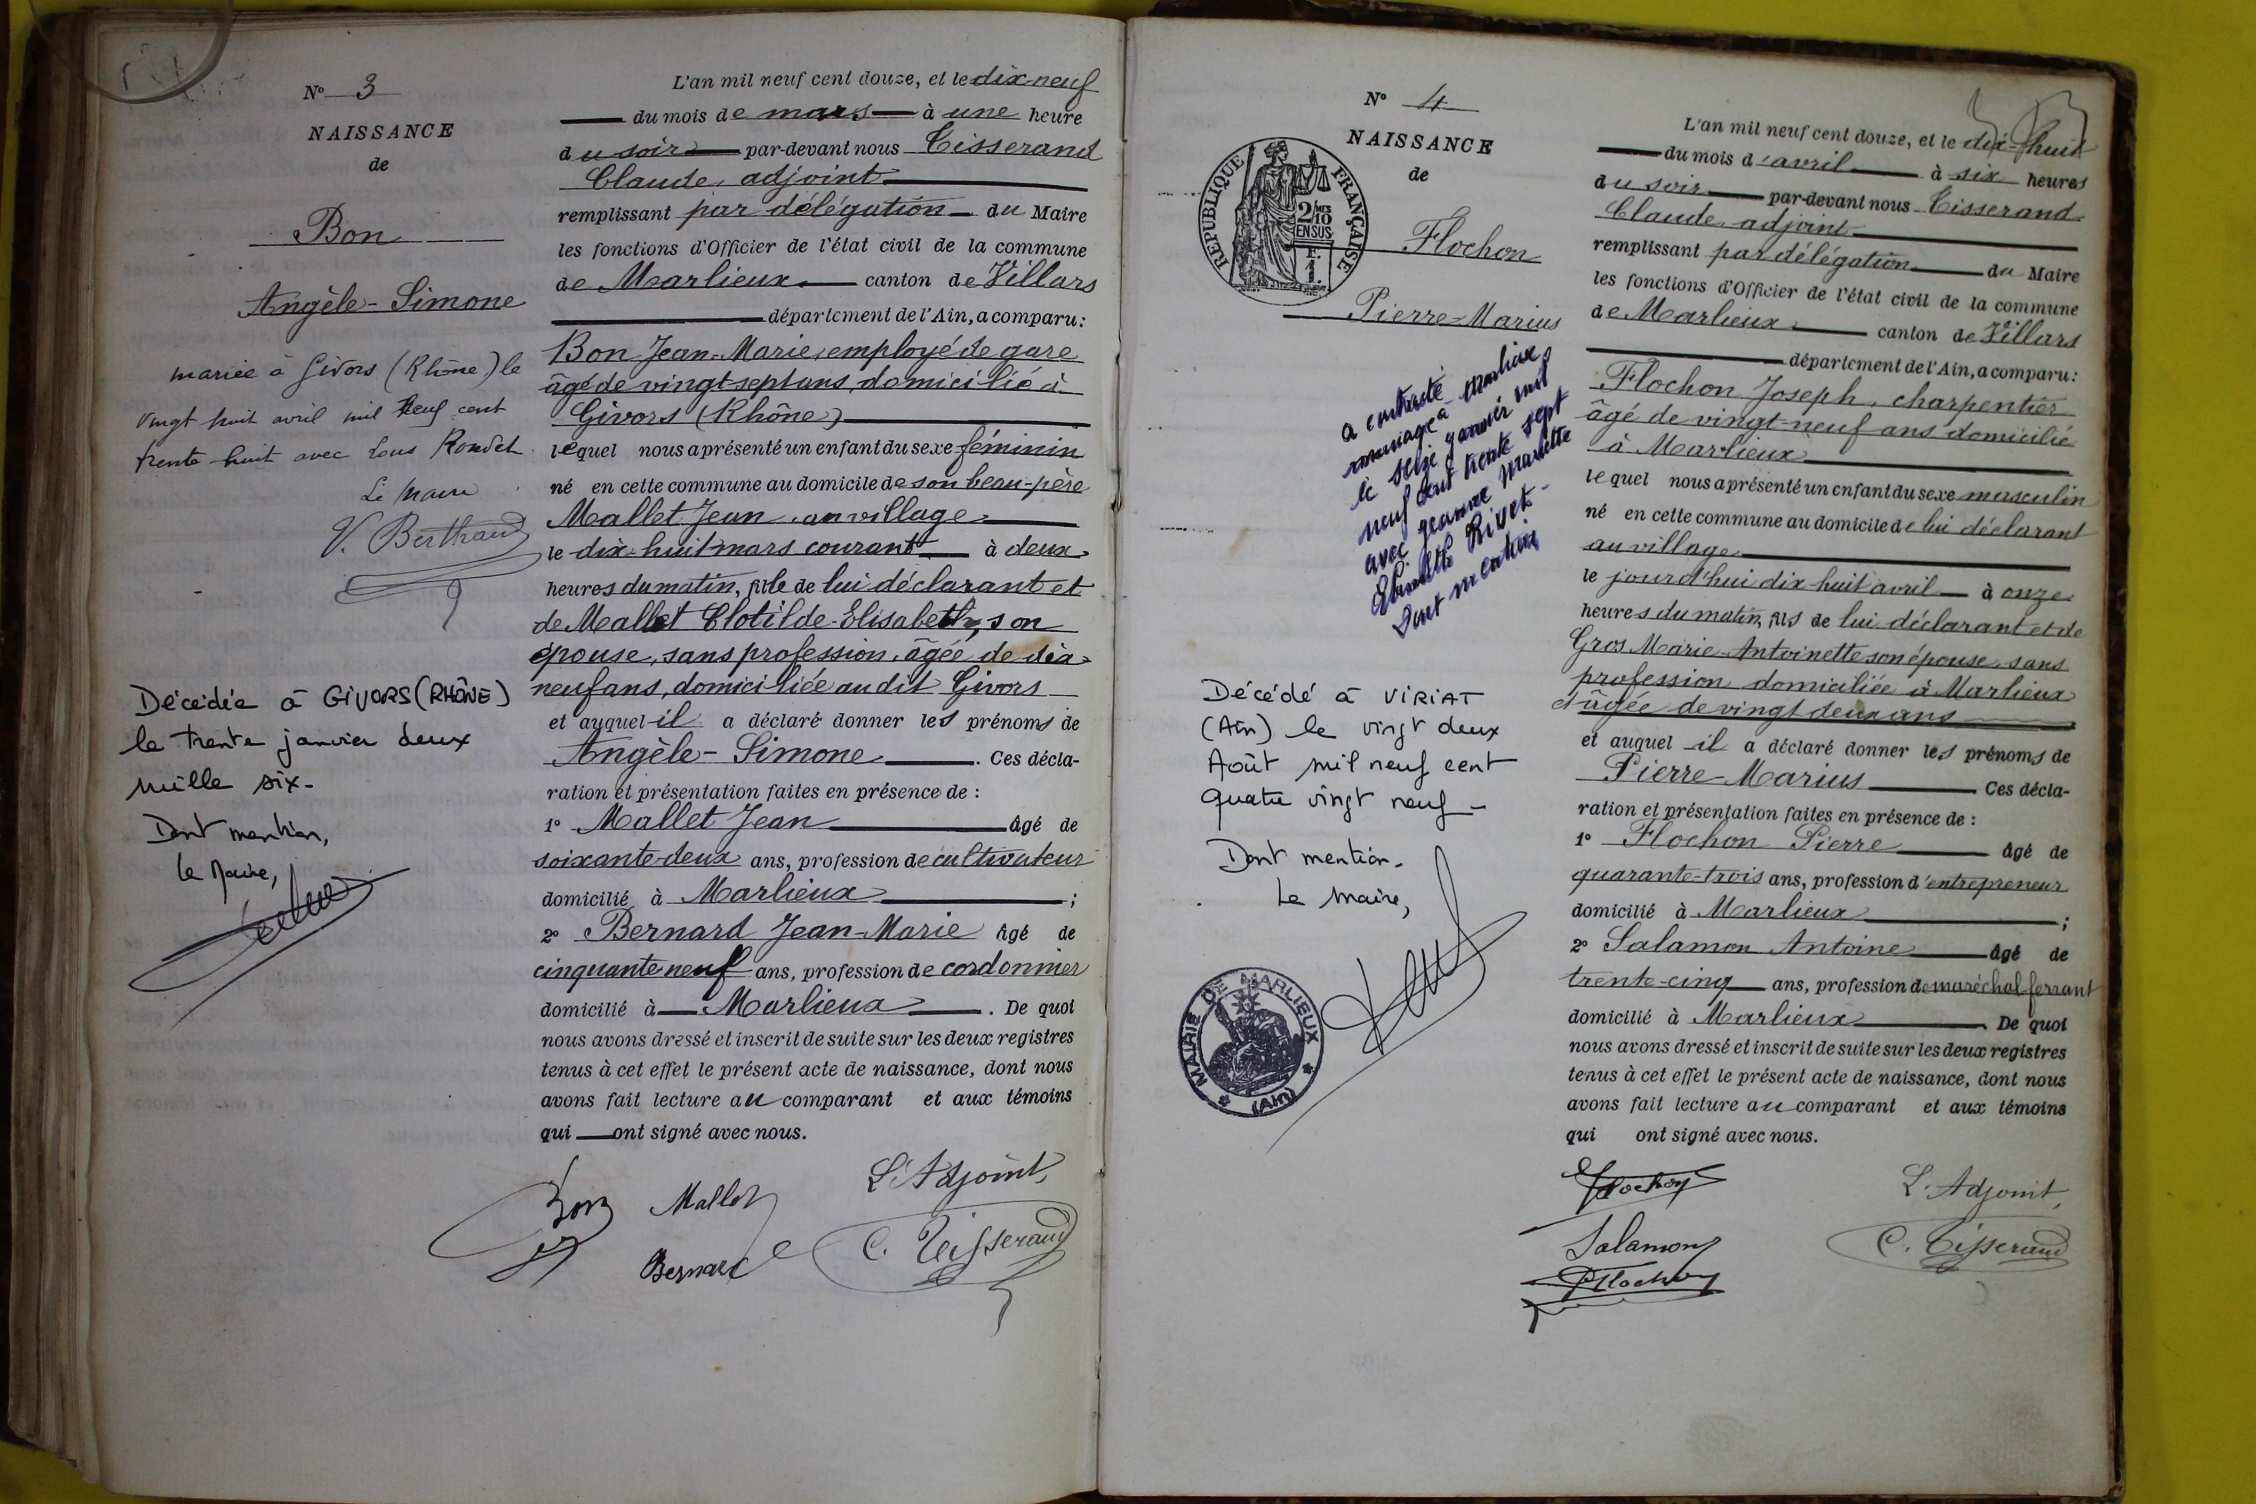 N° 3
NAISSANCE
de
Bon
Angèle-Simone
mariée à Givors (Rhône) le
vingt huit avril mil neuf cent
trente huit avec Louis Rondet
Le Maire
V. Berthaud
Décédée à GIVORS (RHÔNE)
le trente janvier deux
mille six-
Dont mention,
le Maire,
L'an mil neuf cent douze, et le dix-neuf
du mois de mars à une heure
du soir par-devant nous Tisserand
Claude, adjoint
remplissant par délégation du Maire
les fonctions d'Officier de l'état civil de la commune
de Marlieux canton de Villars
département de l'Ain, a comparu:
Bon Jean-Marie, employé de gare
âgé de vingt-sept ans, domicilié à
Givors (Rhône)
lequel nous a présenté un enfant du sexe féminin
né en cette commune au domicile de son beau-père
Mallet Jean, au village
le dix-huit mars courant à deux
heures du matin, fille de lui déclarant et
de Mallet Clotilde-Elisabeth, son
épouse, sans profession, âgée de dix-
neuf ans, domiciliée au dit Givors
et auquel il a déclaré donner les prénoms de
Angèle-Simone. Ces décla-
ration et présentation faites en présence de :
1° Mallet Jean âgé de
soixante-deux ans, profession de cultivateur
domicilié à Marlieux ;
2° Bernard Jean-Marie âgé de
cinquante neuf ans, profession de cordonnier
domicilié à Marlieux. De quoi
nous avons dressé et inscrit de suite sur les deux registres
tenus à cet effet le présent acte de naissance, dont nous
avons fait lecture au comparant et aux témoins
qui ont signé avec nous.
L'Adjoint,
Bon Mallet
Bernard C. Tisserand
N° 4
NAISSANCE
de
RÉPUBLIQUE FRANÇAISE
2/10 MES
EN SUS
Flochon
Pierre-Marius
a contracté
mariage à Marlieux
le seize janvier mil
neuf cent trente sept
avec Jeanne Mariette
Elisabeth Rivet-
Dont mention
Décédé à VIRIAT
(Ain) le vingt deux
Août mil neuf cent
quatre vingt neuf-
Dont mention-
Le Maire,
MAIRIE DE MARLIEUX
(Ain)
L'an mil neuf cent douze, et le dix-huit
du mois d'avril à six heures
du soir par-devant nous Tisserand
Claude, adjoint
remplissant par délégation du Maire
les fonctions d'Officier de l'état civil de la commune
de Marlieux canton de Villars
département de l'Ain, a comparu:
Flochon Joseph, charpentier
âgé de vingt-neuf ans domicilié
à Marlieux
lequel nous a présenté un enfant du sexe masculin
né en cette commune au domicile de lui déclarant
au village
le jourd'hui dix-huit avril à onze
heures du matin, fils de lui déclarant et de
Gros Marie-Antoinette son épouse, sans
profession domiciliée à Marlieux
et âgée de vingt deux ans
et auquel il a déclaré donner les prénoms de
Pierre-Marius Ces décla-
ration et présentation faites en présence de :
1° Flochon Pierre âgé de
quarante-trois ans, profession d'entrepreneur
domicilié à Marlieux ;
2° Salamon Antoine âgé de
trente-cinq ans, profession de maréchal ferrant
domicilié à Marlieux. De quoi
nous avons dressé et inscrit de suite sur les deux registres
tenus à cet effet le présent acte de naissance, dont nous
avons fait lecture au comparant et aux témoins
qui ont signé avec nous.
Flochon L'Adjoint,
Salamon C. Tisserand
P Flochon